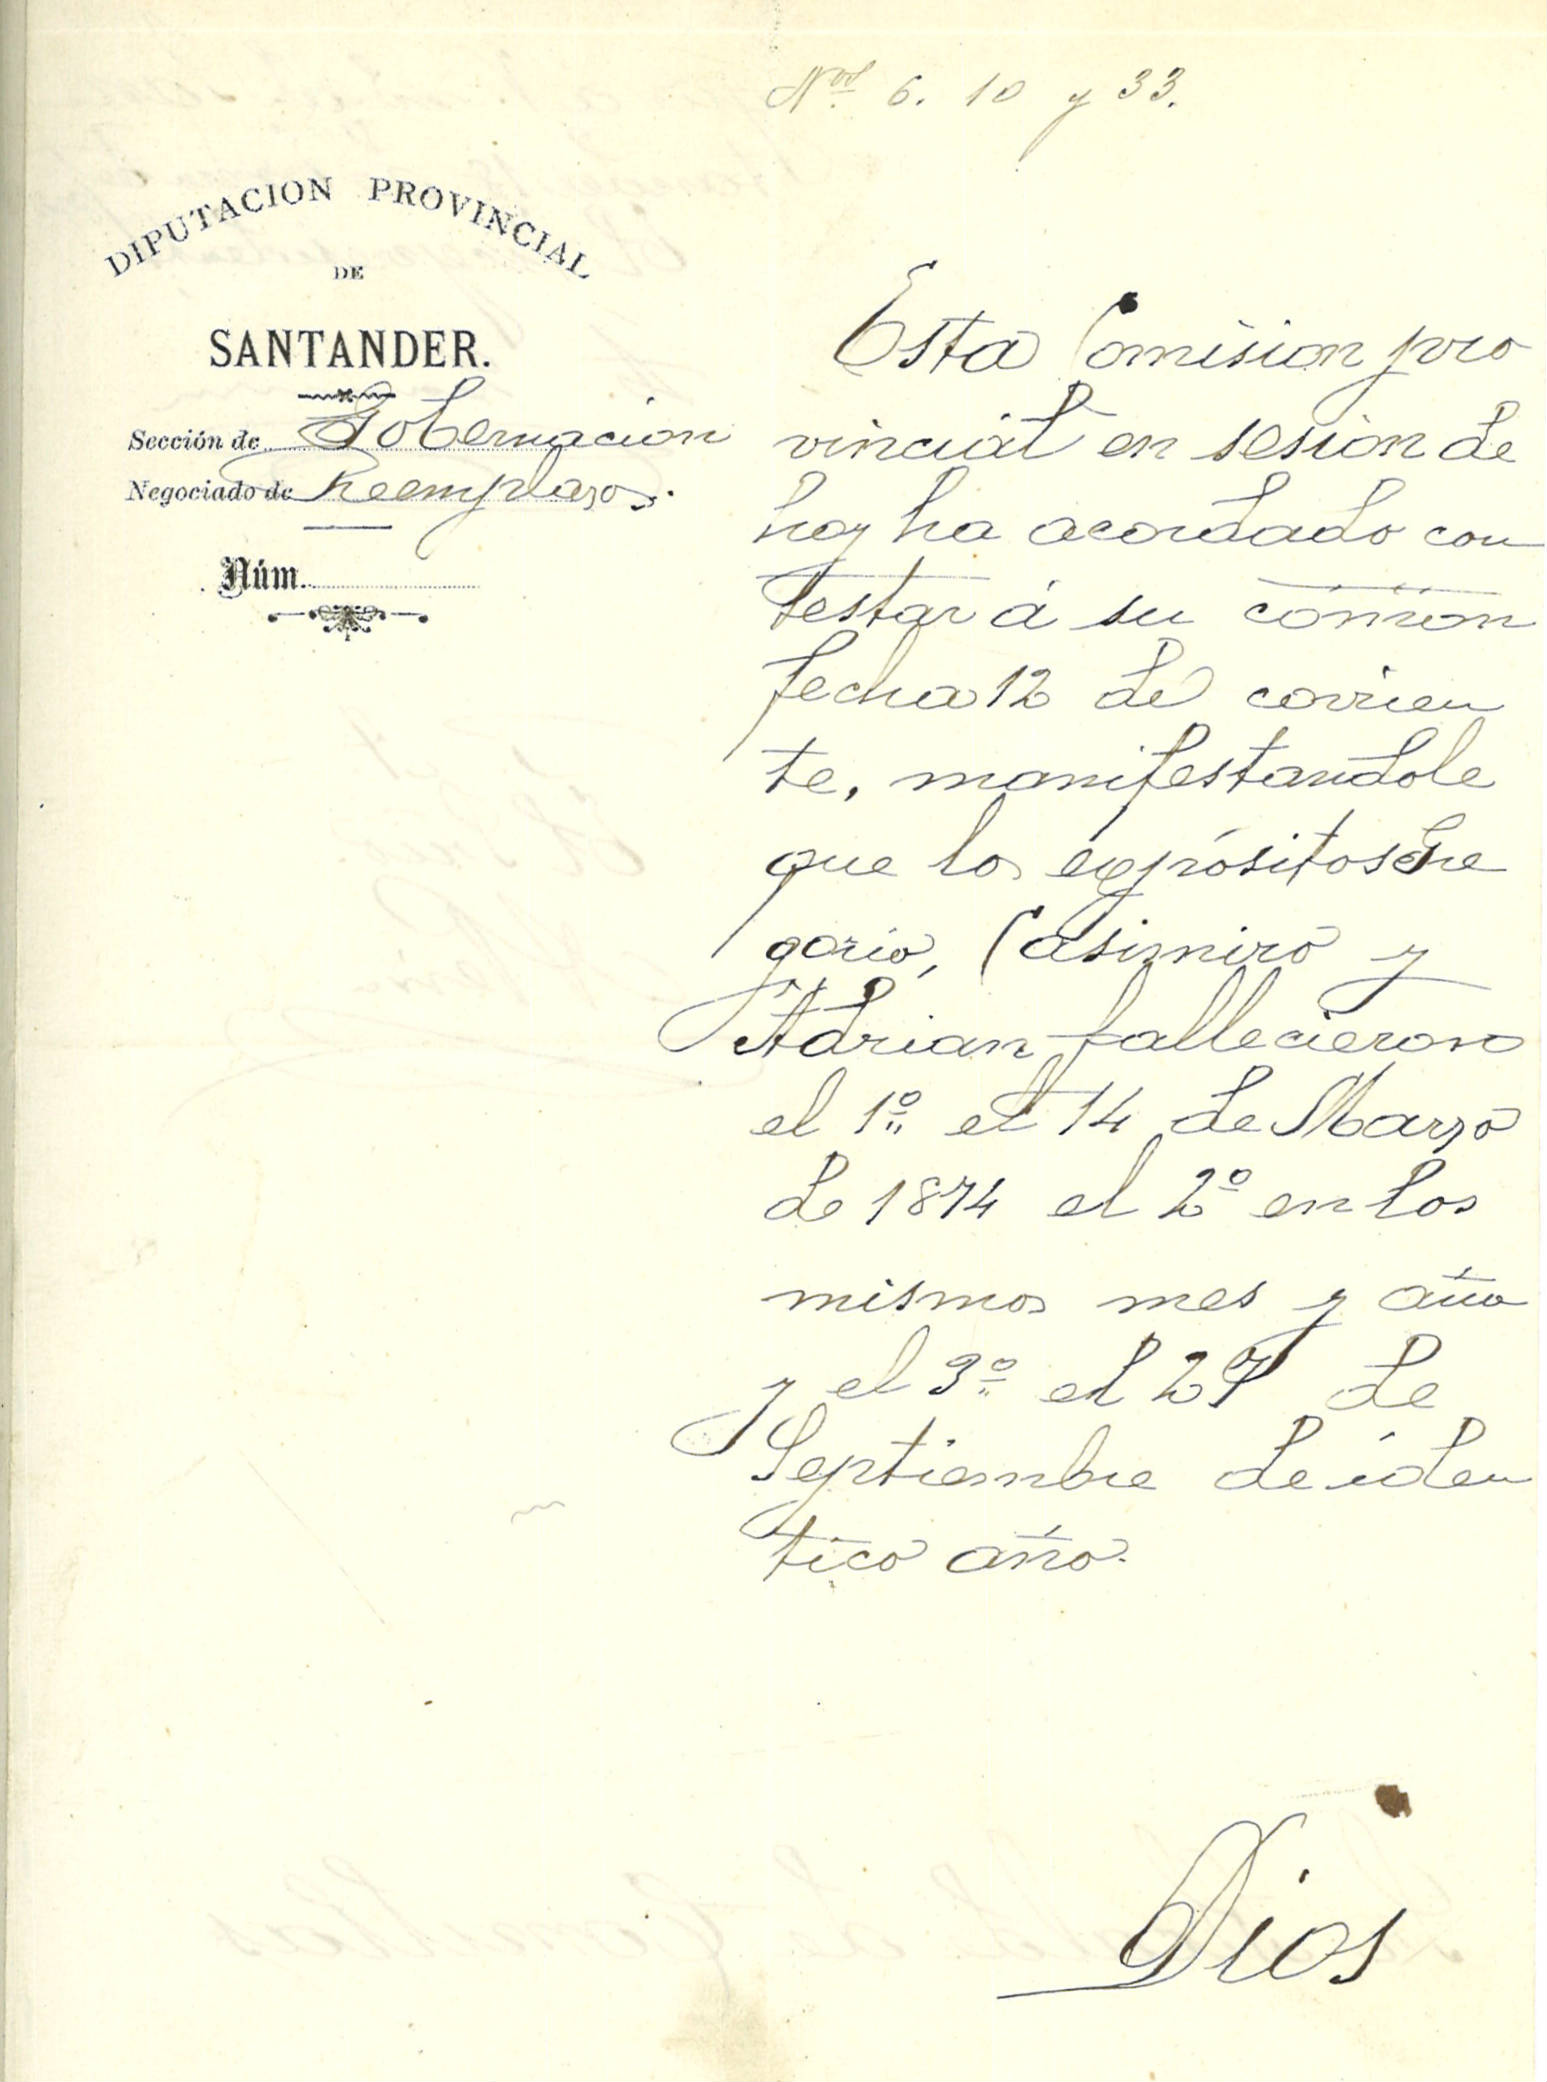 Nos 6. 10 y 33.
DIPUTACION PROVINCIAL
DE
SANTANDER.
Sección de Gobernacion
Negociado de Reemplazos.
Núm.
Esta Comision pro
vincial en sesion de
hoy ha acordado con
testar á su comon
fecha 12 del corrien
te, manifestandole
que los expósitos Gre
gorio, Casimiro y
Adrian fallecieron
el 1º el 14 de Marzo
de 1874 el 2º en los
mismos mes y año
y el 3º el 27 de
Septiembre de iden
tico año.
Dios